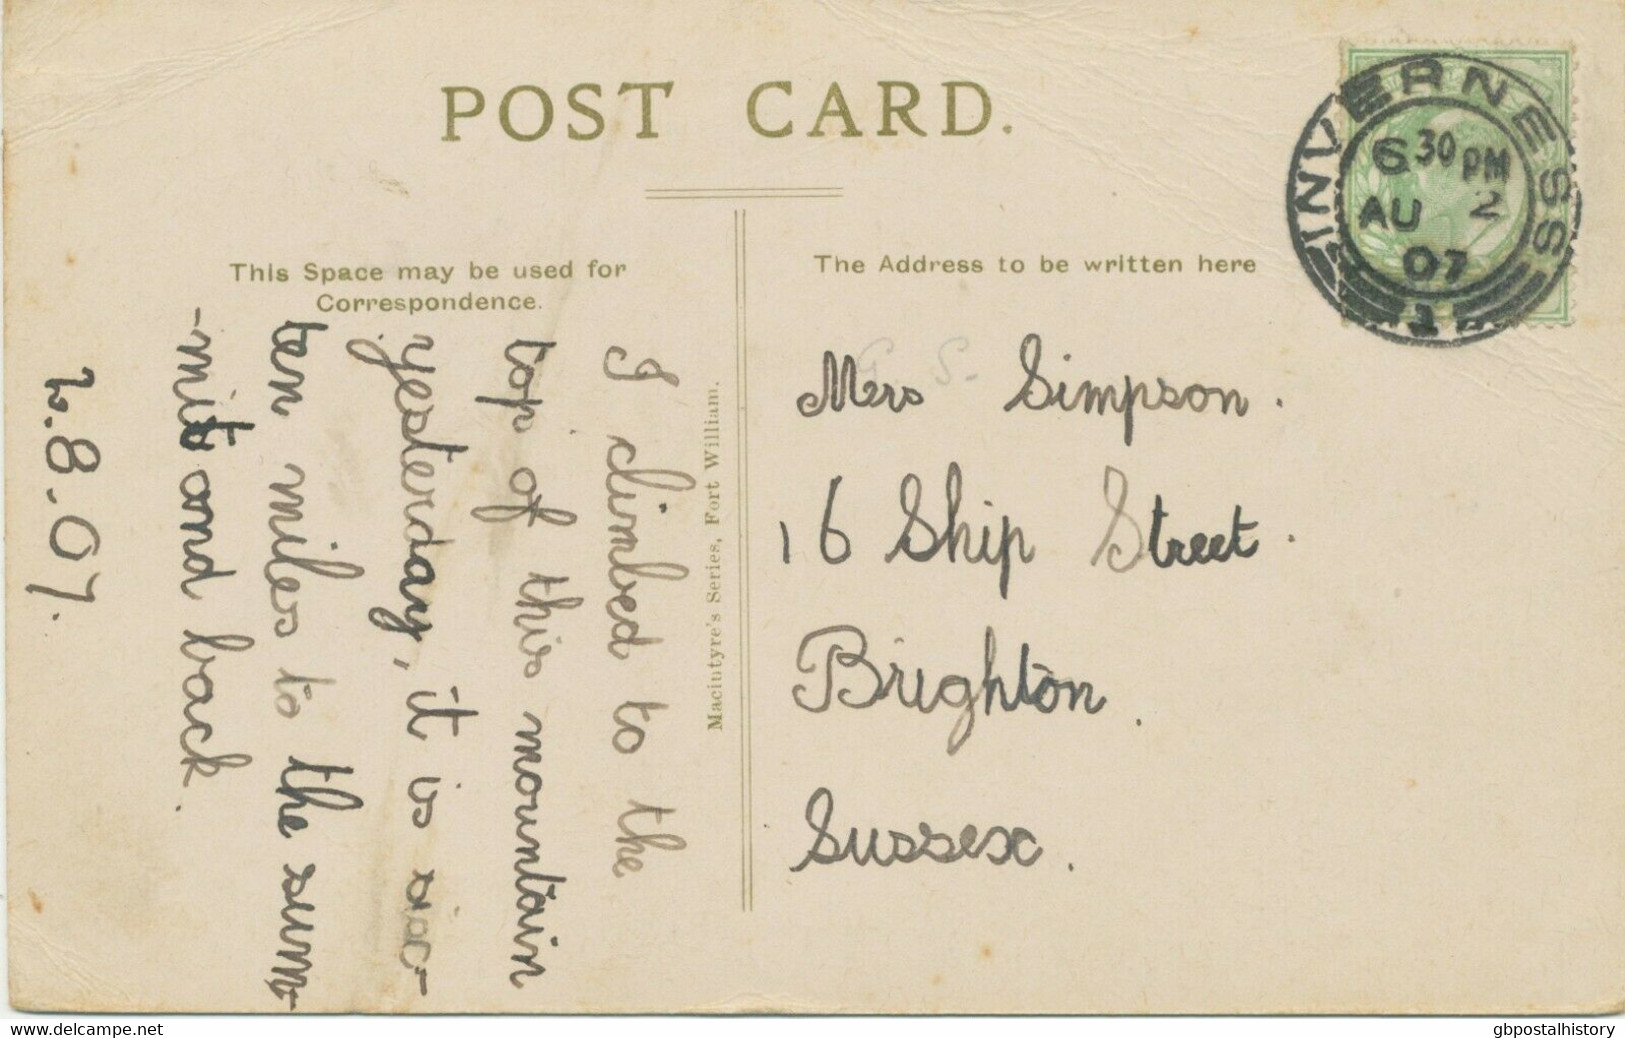 POST CARD.
This Space may be used for
Correspondence.
The Address to be written here
INVERNESS
6 30 PM
AU 2
07
1
I climbed to the
top of this mountain
yesterday, it is six-
ten miles to the summ
-mit and back.
2.8.07.
Macintyre's Series, Fort William.
G. S.
Mrs Simpson.
16 Ship Street.
Brighton.
Sussex.
www.delcampe.net
gbpostalhistory